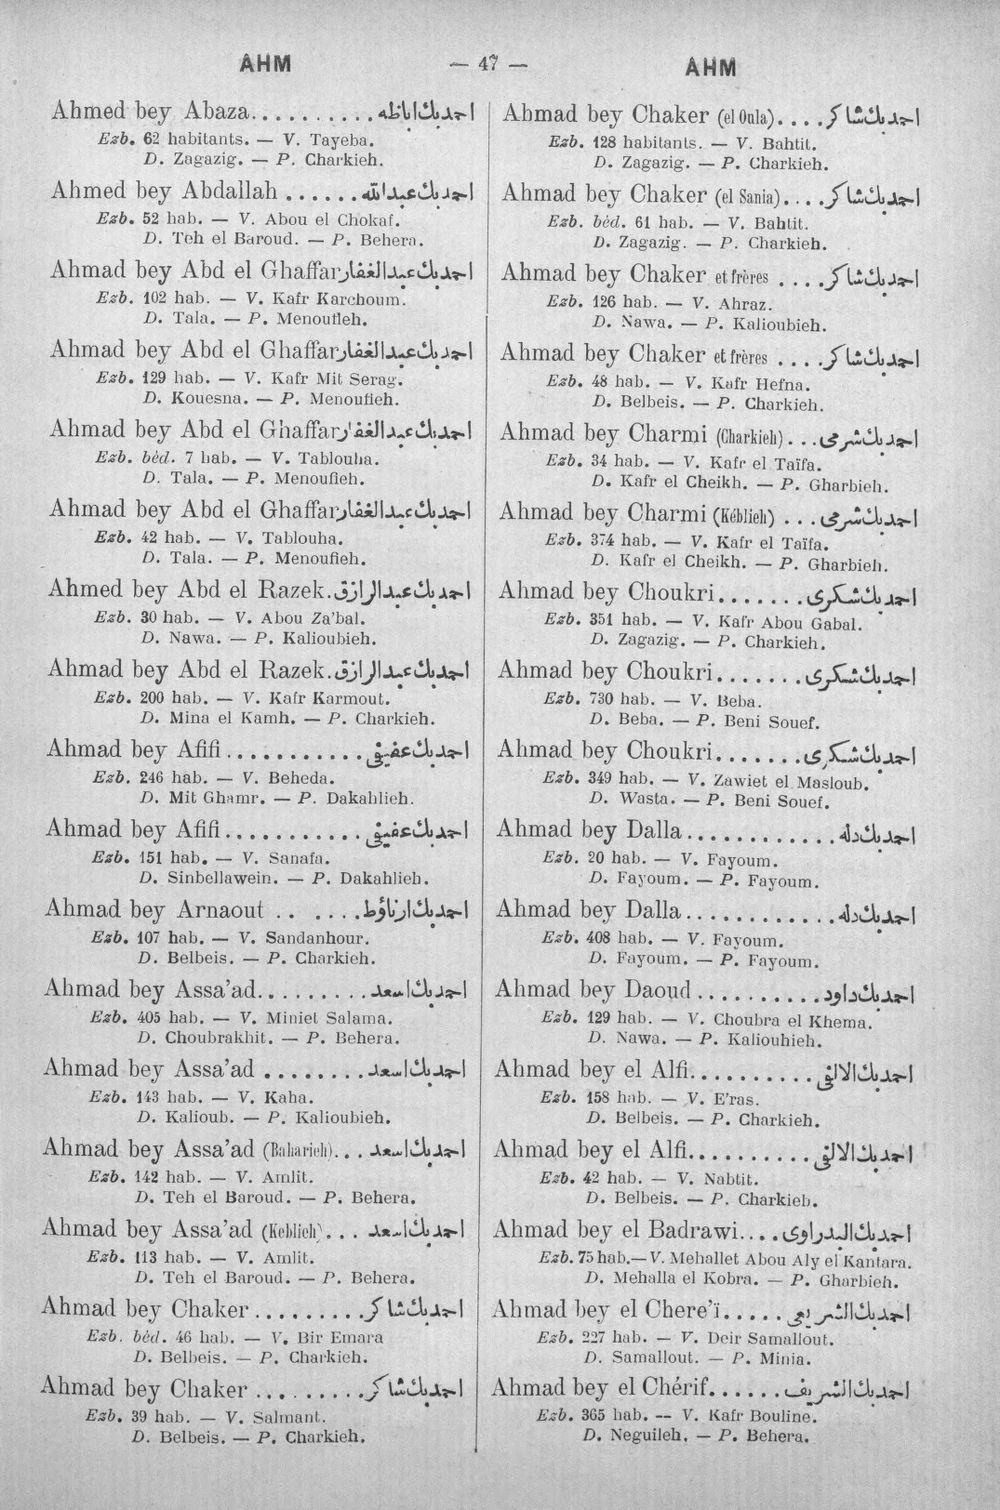 ÂHM — 47 — AHM
Ahmed bey Abaza.......... احمد بك اباظه
Ezb. 62 habitants. — V. Tayeba.
D. Zagazig. — P. Charkieh.
Ahmed bey Abdallah ...... احمد بك عبد الله
Ezb. 52 hab. — V. Abou el Chokaf.
D. Teh el Baroud. — P. Behera.
Ahmad bey Abd el Ghaffar احمد بك عبد الغفار
Ezb. 102 hab. — V. Kafr Karchoum.
D. Tala. — P. Menoufieh.
Ahmad bey Abd el Ghaffar احمد بك عبد الغفار
Ezb. 129 hab. — V. Kafr Mit Serag.
D. Kouesna. — P. Menoufieh.
Ahmad bey Abd el Ghaffar احمد بك عبد الغفار
Ezb. bèd. 7 hab. — V. Tablouha.
D. Tala. — P. Menoufieh.
Ahmad bey Abd el Ghaffar احمد بك عبد الغفار
Ezb. 42 hab. — V. Tablouha.
D. Tala. — P. Menoufieh.
Ahmed bey Abd el Razek. احمد بك عبد الرازق
Ezb. 30 hab. — V. Abou Za'bal.
D. Nawa. — P. Kalioubieh.
Ahmad bey Abd el Razek. احمد بك عبد الرازق
Ezb. 200 hab. — V. Kafr Karmout.
D. Mina el Kamh. — P. Charkieh.
Ahmad bey Afifi........... احمد بك عفيفى
Ezb. 246 hab. — V. Beheda.
D. Mit Ghamr. — P. Dakahlieh.
Ahmad bey Afifi........... احمد بك عفيفى
Ezb. 151 hab. — V. Sanafa.
D. Sinbellawein. — P. Dakahlieh.
Ahmad bey Arnaout .. .... احمد بك ارناؤط
Ezb. 107 hab. — V. Sandanhour.
D. Belbeis. — P. Charkieh.
Ahmad bey Assa'ad......... احمد بك اسعد
Ezb. 405 hab. — V. Miniet Salama.
D. Choubrakhit. — P. Behera.
Ahmad bey Assa'ad ........ احمد بك اسعد
Ezb. 143 hab. — V. Kaha.
D. Kalioub. — P. Kalioubieh.
Ahmad bey Assa'ad (Baharieh)... احمد بك اسعد
Ezb. 142 hab. — V. Amlit.
D. Teh el Baroud. — P. Behera.
Ahmad bey Assa'ad (Keblieh)... احمد بك اسعد
Ezb. 113 hab. — V. Amlit.
D. Teh el Baroud. — P. Behera.
Ahmad bey Chaker......... احمد بك شاكر
Ezb. bèd. 46 hab. — V. Bir Emara
D. Belbeis. — P. Charkieh.
Ahmad bey Chaker......... احمد بك شاكر
Ezb. 39 hab. — V. Salmant.
D. Belbeis. — P. Charkieh.
Ahmad bey Chaker (el Oula).... احمد بك شاكر
Ezb. 128 habitants. — V. Bahtit.
D. Zagazig. — P. Charkieh.
Ahmad bey Chaker (el Sania).... احمد بك شاكر
Ezb. bèd. 61 hab. — V. Bahtit.
D. Zagazig. — P. Charkieh.
Ahmad bey Chaker et frères .... احمد بك شاكر
Ezb. 126 hab. — V. Ahraz.
D. Nawa. — P. Kalioubieh.
Ahmad bey Chaker et frères .... احمد بك شاكر
Ezb. 48 hab. — V. Kafr Hefna.
D. Belbeis. — P. Charkieh.
Ahmad bey Charmi (Charkieh)... احمد بك شرمى
Ezb. 34 hab. — V. Kafr el Taïfa.
D. Kafr el Cheikh. — P. Gharbieh.
Ahmad bey Charmi (Kéblieh) ... احمد بك شرمى
Ezb. 374 hab. — V. Kafr el Taïfa.
D. Kafr el Cheikh. — P. Gharbieh.
Ahmad bey Choukri....... احمد بك شكرى
Ezb. 351 hab. — V. Kafr Abou Gabal.
D. Zagazig. — P. Charkieh.
Ahmad bey Choukri....... احمد بك شكرى
Ezb. 730 hab. — V. Beba.
D. Beba. — P. Beni Souef.
Ahmad bey Choukri....... احمد بك شكرى
Ezb. 349 hab. — V. Zawiet el Masloub.
D. Wasta. — P. Beni Souef.
Ahmad bey Dalla............ احمد بك دله
Ezb. 20 hab. — V. Fayoum.
D. Fayoum. — P. Fayoum.
Ahmad bey Dalla............ احمد بك دله
Ezb. 408 hab. — V. Fayoum.
D. Fayoum. — P. Fayoum.
Ahmad bey Daoud .......... احمد بك داود
Ezb. 129 hab. — V. Choubra el Khema.
D. Nawa. — P. Kaliouhieh.
Ahmad bey el Alfi.......... احمد بك الالفى
Ezb. 158 hab. — V. E'ras.
D. Belbeis. — P. Charkieh.
Ahmad bey el Alfi.......... احمد بك الالفى
Ezb. 42 hab. — V. Nabtit.
D. Belbeis. — P. Charkieh.
Ahmad bey el Badrawi.... احمد بك البدراوى
Ezb. 75 hab. — V. Mehallet Abou Aly el Kantara.
D. Mehalla el Kobra. — P. Gharbieh.
Ahmad bey el Chere'ï..... احمد بك الشريعى
Ezb. 227 hab. — V. Deir Samallout.
D. Samallout. — P. Minia.
Ahmad bey el Chérif...... احمد بك الشريف
Ezb. 365 hab. -- V. Kafr Bouline.
D. Neguileh. — P. Behera.